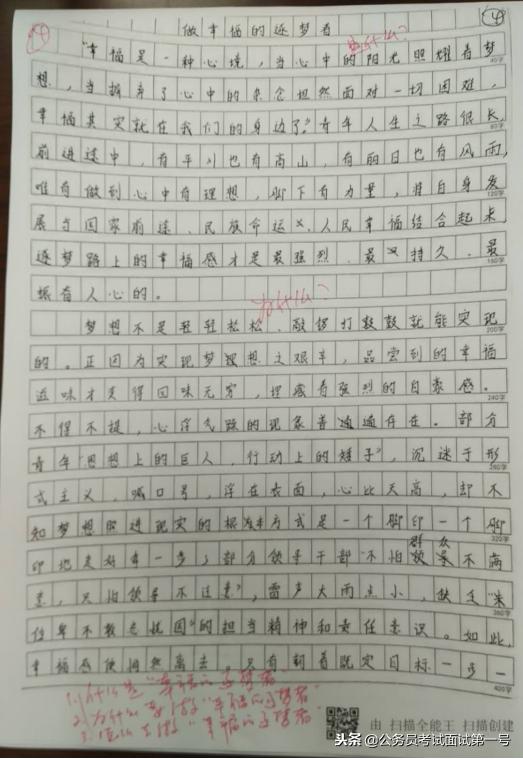 做幸福的逐梦者
“幸福是一种心境,当心中的阳光照耀着梦
为什么?
想,当摒弃了心中的杂念坦然面对一切困难,
幸福其实就在我们的身边了。”青年人生之路很长,
前进途中,有平川也有高山,有丽日也有风雨,
唯有做到心中有理想,脚下有力量,将自身发
展与国家前途、民族命运、人民幸福结合起来,
逐梦路上的幸福感才是最强烈、最持久、最
振奋人心的。
为什么?
梦想不是轻轻松松、敲锣打鼓就能实现
的。正因为实现梦想之艰辛,品尝到的幸福
滋味才更得回味无穷,埋藏着强烈的自豪感。
不得不提,心浮气躁的现象普遍存在。部分
青年“思想上的巨人,行动上的矮子”,沉迷于形
式主义,喊口号,浮在表面,心比天高,却不
知梦想照进现实的根本方式是一个脚印一个脚
印地走好每一步;部分领导干部“不怕群众不满
意,只怕领导不注意”,雷声大而点小,缺乏“朱
位卑不敢忘忧国”的担当精神和责任意识。如此,
幸福感便悄然离去。只有朝着既定目标一步一
1.什么是“幸福的逐梦者”
2.为什么要做“幸福的逐梦者”
3.怎么做“幸福的逐梦者”
由 扫描全能王 扫描创建
头条@公务员考试面试第一号